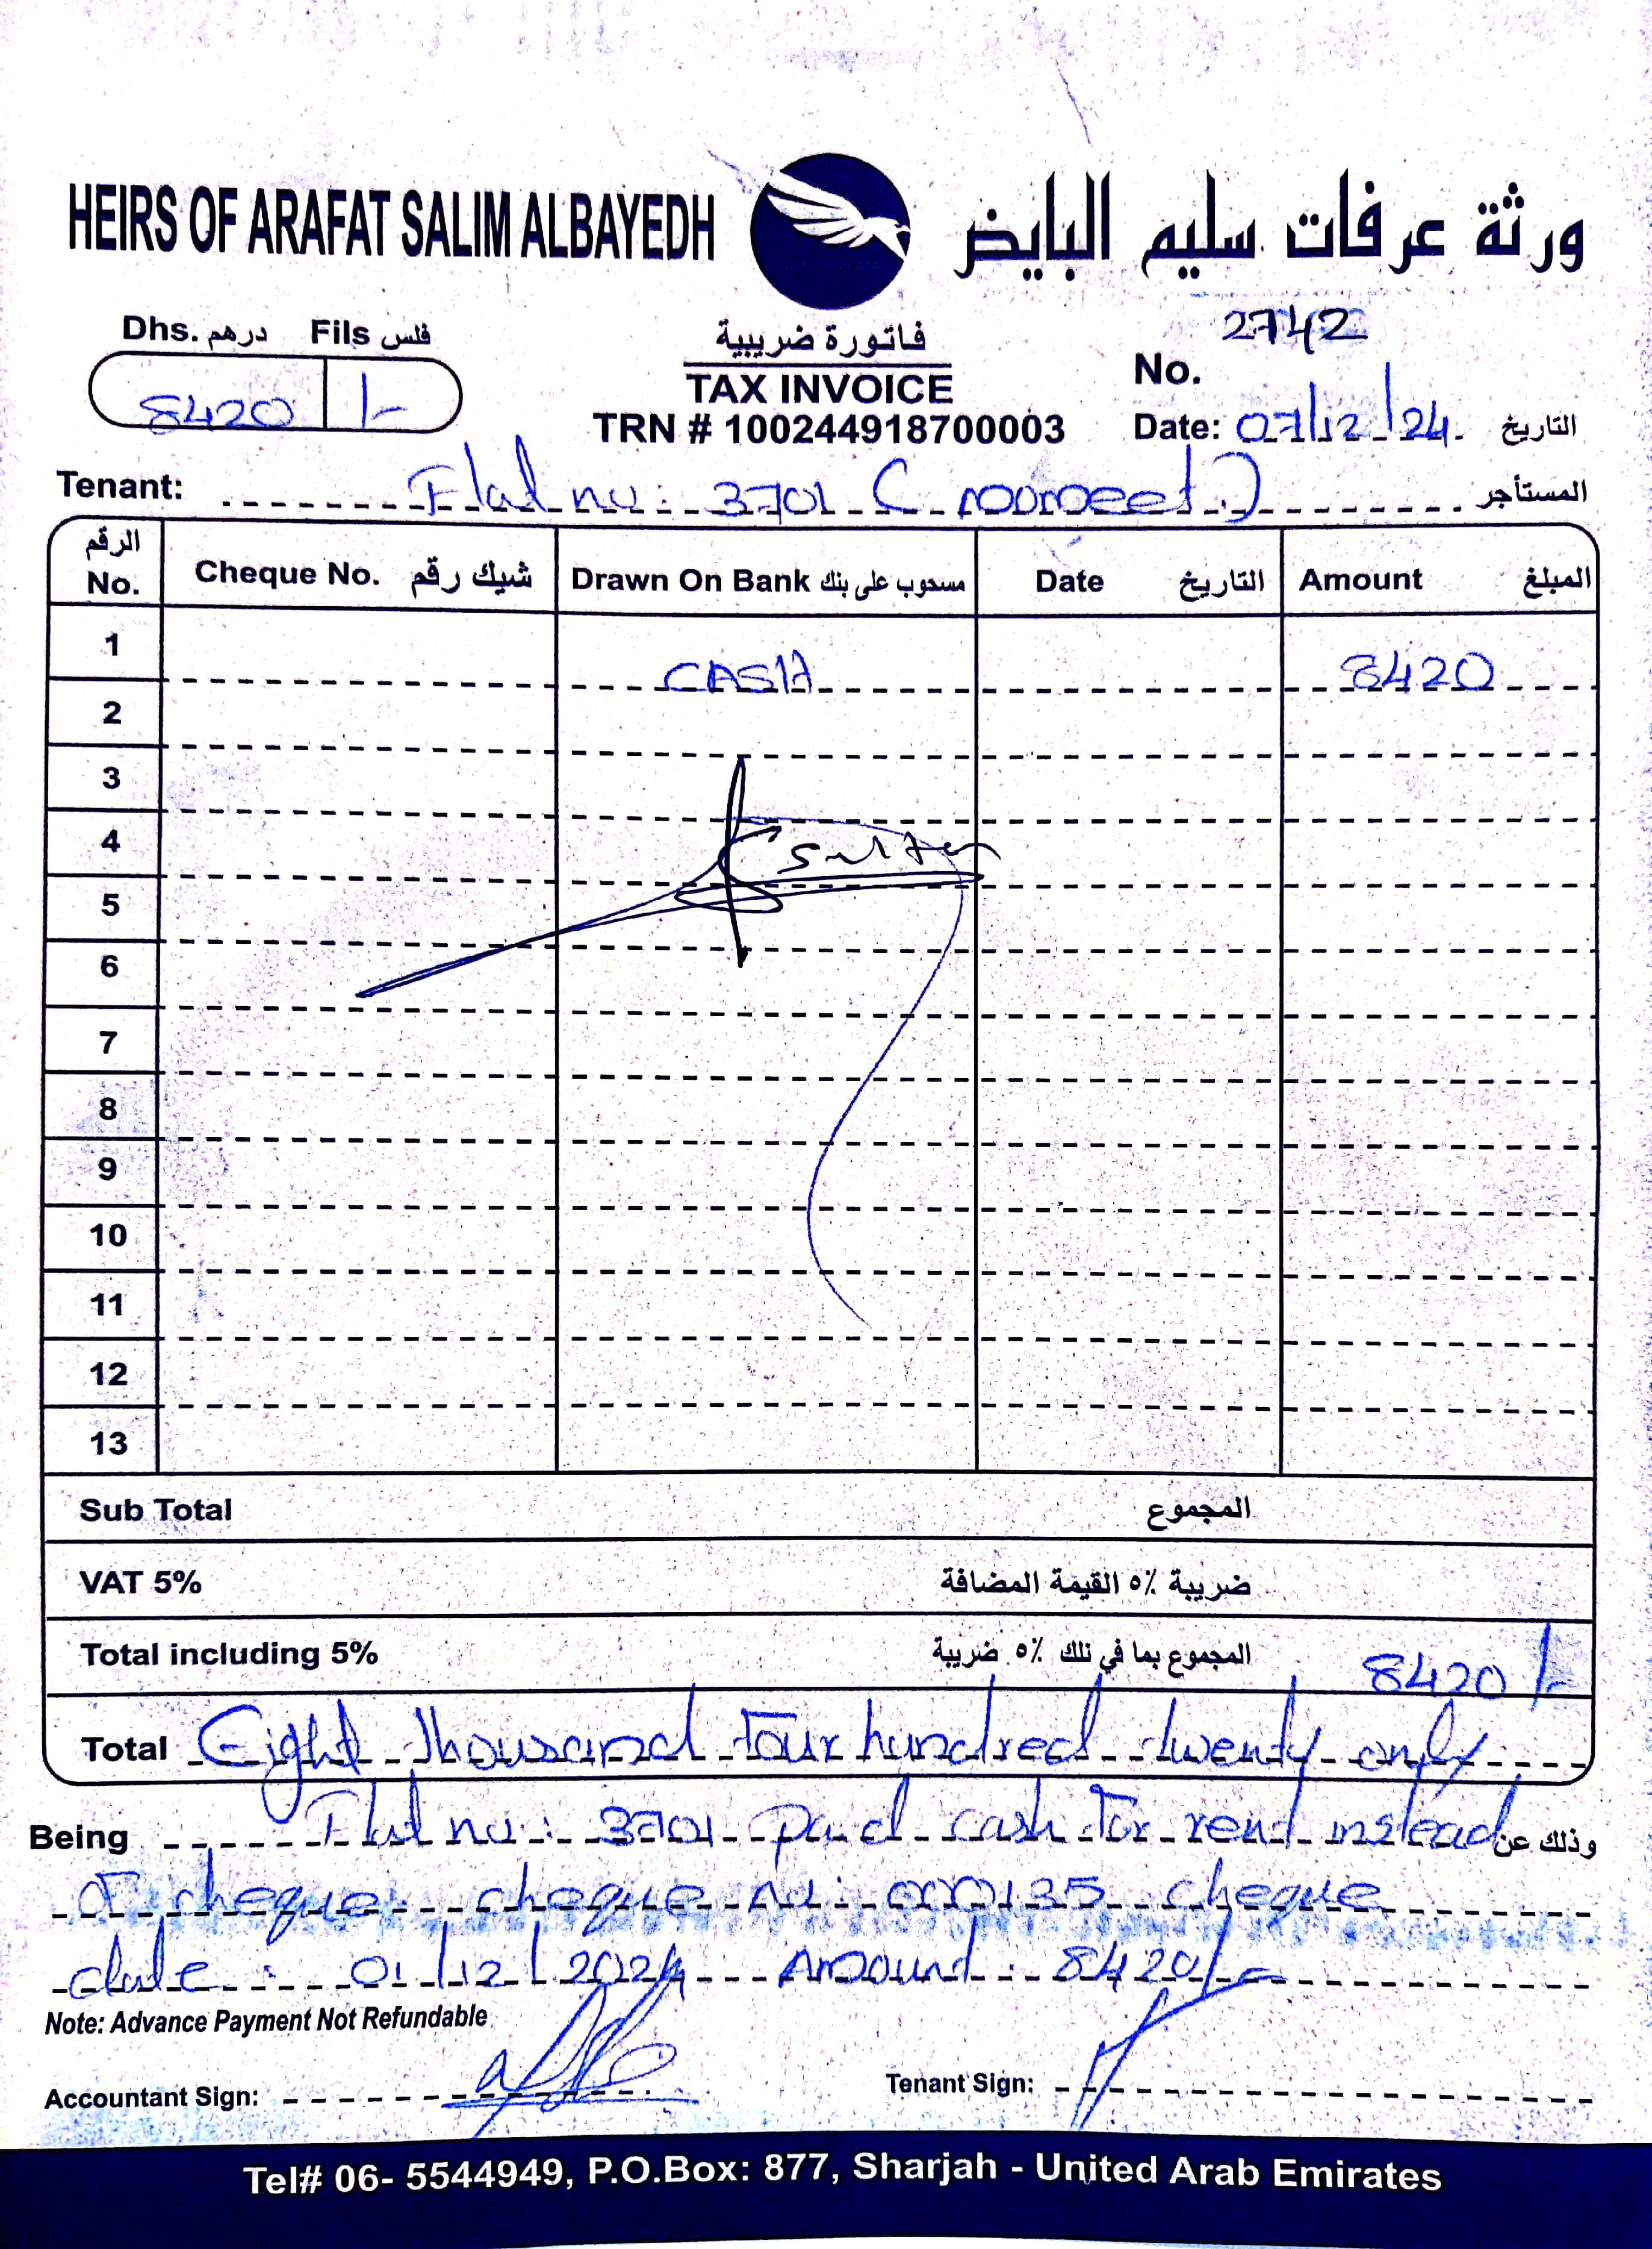 HEIRS OF ARAFAT SALIM ALBAYEDH ورثة عرفات سليم البايض
Dhs. درهم Fils فلس
8420 /-
فاتورة ضريبية
TAX INVOICE
TRN # 100244918700003
No. 2742
Date: 07/12/24 التاريخ
Tenant: Flat no: 3701 ( ) المستأجر
الرقم No. Cheque No. شيك رقم Drawn On Bank مسحوب على بنك Date التاريخ Amount المبلغ
1 CASH 8420
2
3
4 Sultan
5
6
7
8
9
10
11
12
13
Sub Total المجموع
VAT 5% ضريبة ٥٪ القيمة المضافة
Total including 5% المجموع بما في تلك ٥٪ ضريبة 8420/-
Total Eight thousand four hundred twenty only
Being Flat no: 3701 paid cash for rent instead وذلك عن
of cheque. cheque no: 000135 cheque
date: 01/12/2024 Amount: 8420/-
Note: Advance Payment Not Refundable
Accountant Sign: Tenant Sign:
Tel# 06- 5544949, P.O.Box: 877, Sharjah - United Arab Emirates